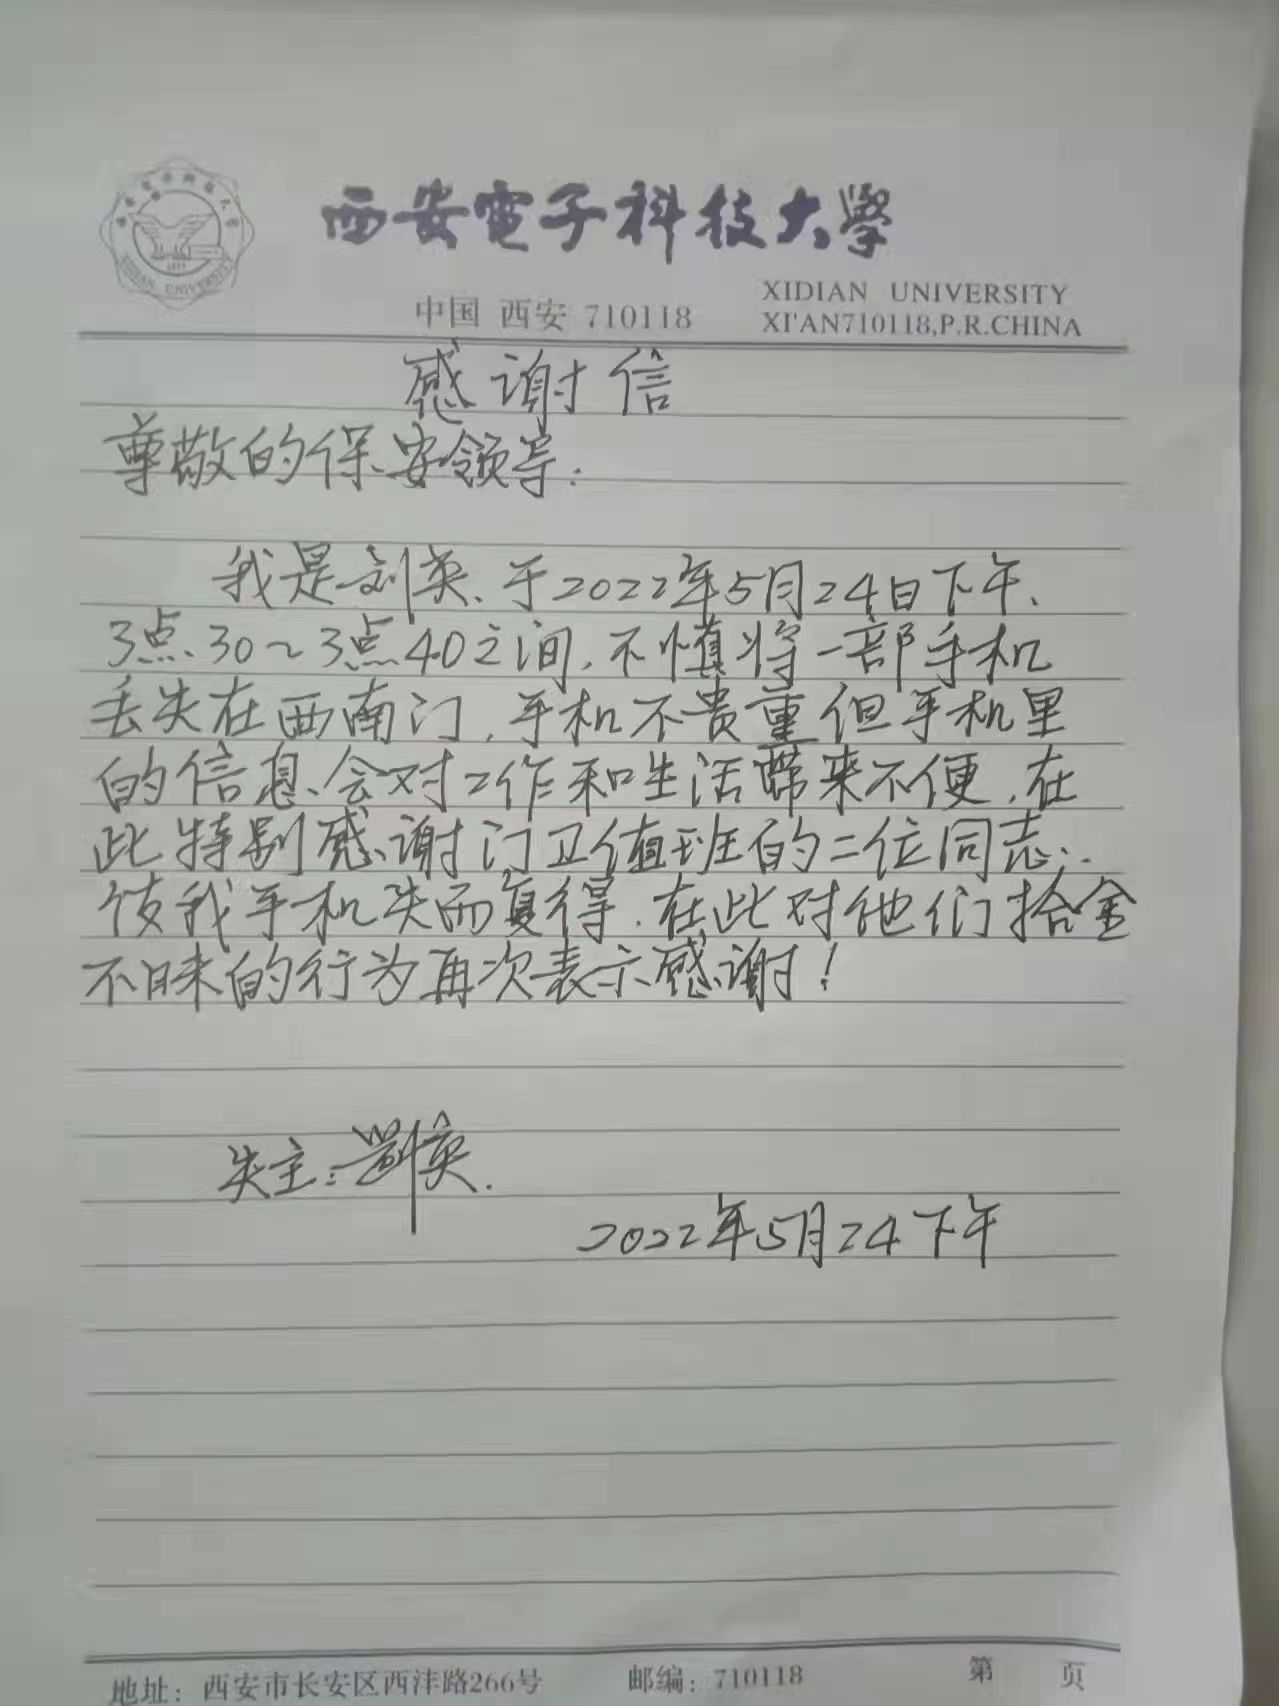 西安電子科技大學
XIDIAN UNIVERSITY
中国 西安 710118
XIDIAN UNIVERSITY
XI'AN710118,P.R.CHINA
感谢信
尊敬的保安领导:
我是刘英、于2022年5月24日下午、
3点、30~3点40之间,不慎将一部手机
丢失在西南门,手机不贵重但手机里
的信息、会对工作和生活带来不便,在
此特别感谢门卫值班的二位同志..
使我手机失而复得.在此对他们拾金
不昧的行为再次表示感谢!
失主:刘英.
2022年5月24下午
地址:西安市长安区西沣路266号 邮编:710118 第 页